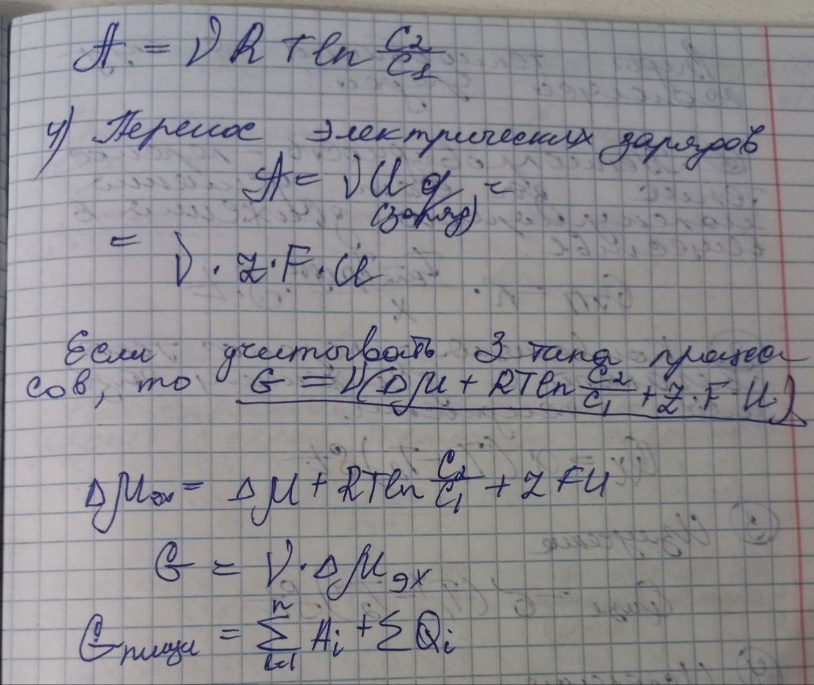 A = ν R T ln C2/C1
4) Перенос электрических зарядов
A = ν U q =
(заряд)
= ν · Z · F · U
Если учитывать 3 типа процес
сов, то G = ν(Δμ + RT ln C2/C1 + Z · F · U)
Δμэх = Δμ + RT ln C2/C1 + Z F U
G = ν · Δμэх
Gпищи = Σ n i=1 Ai + Σ Qi